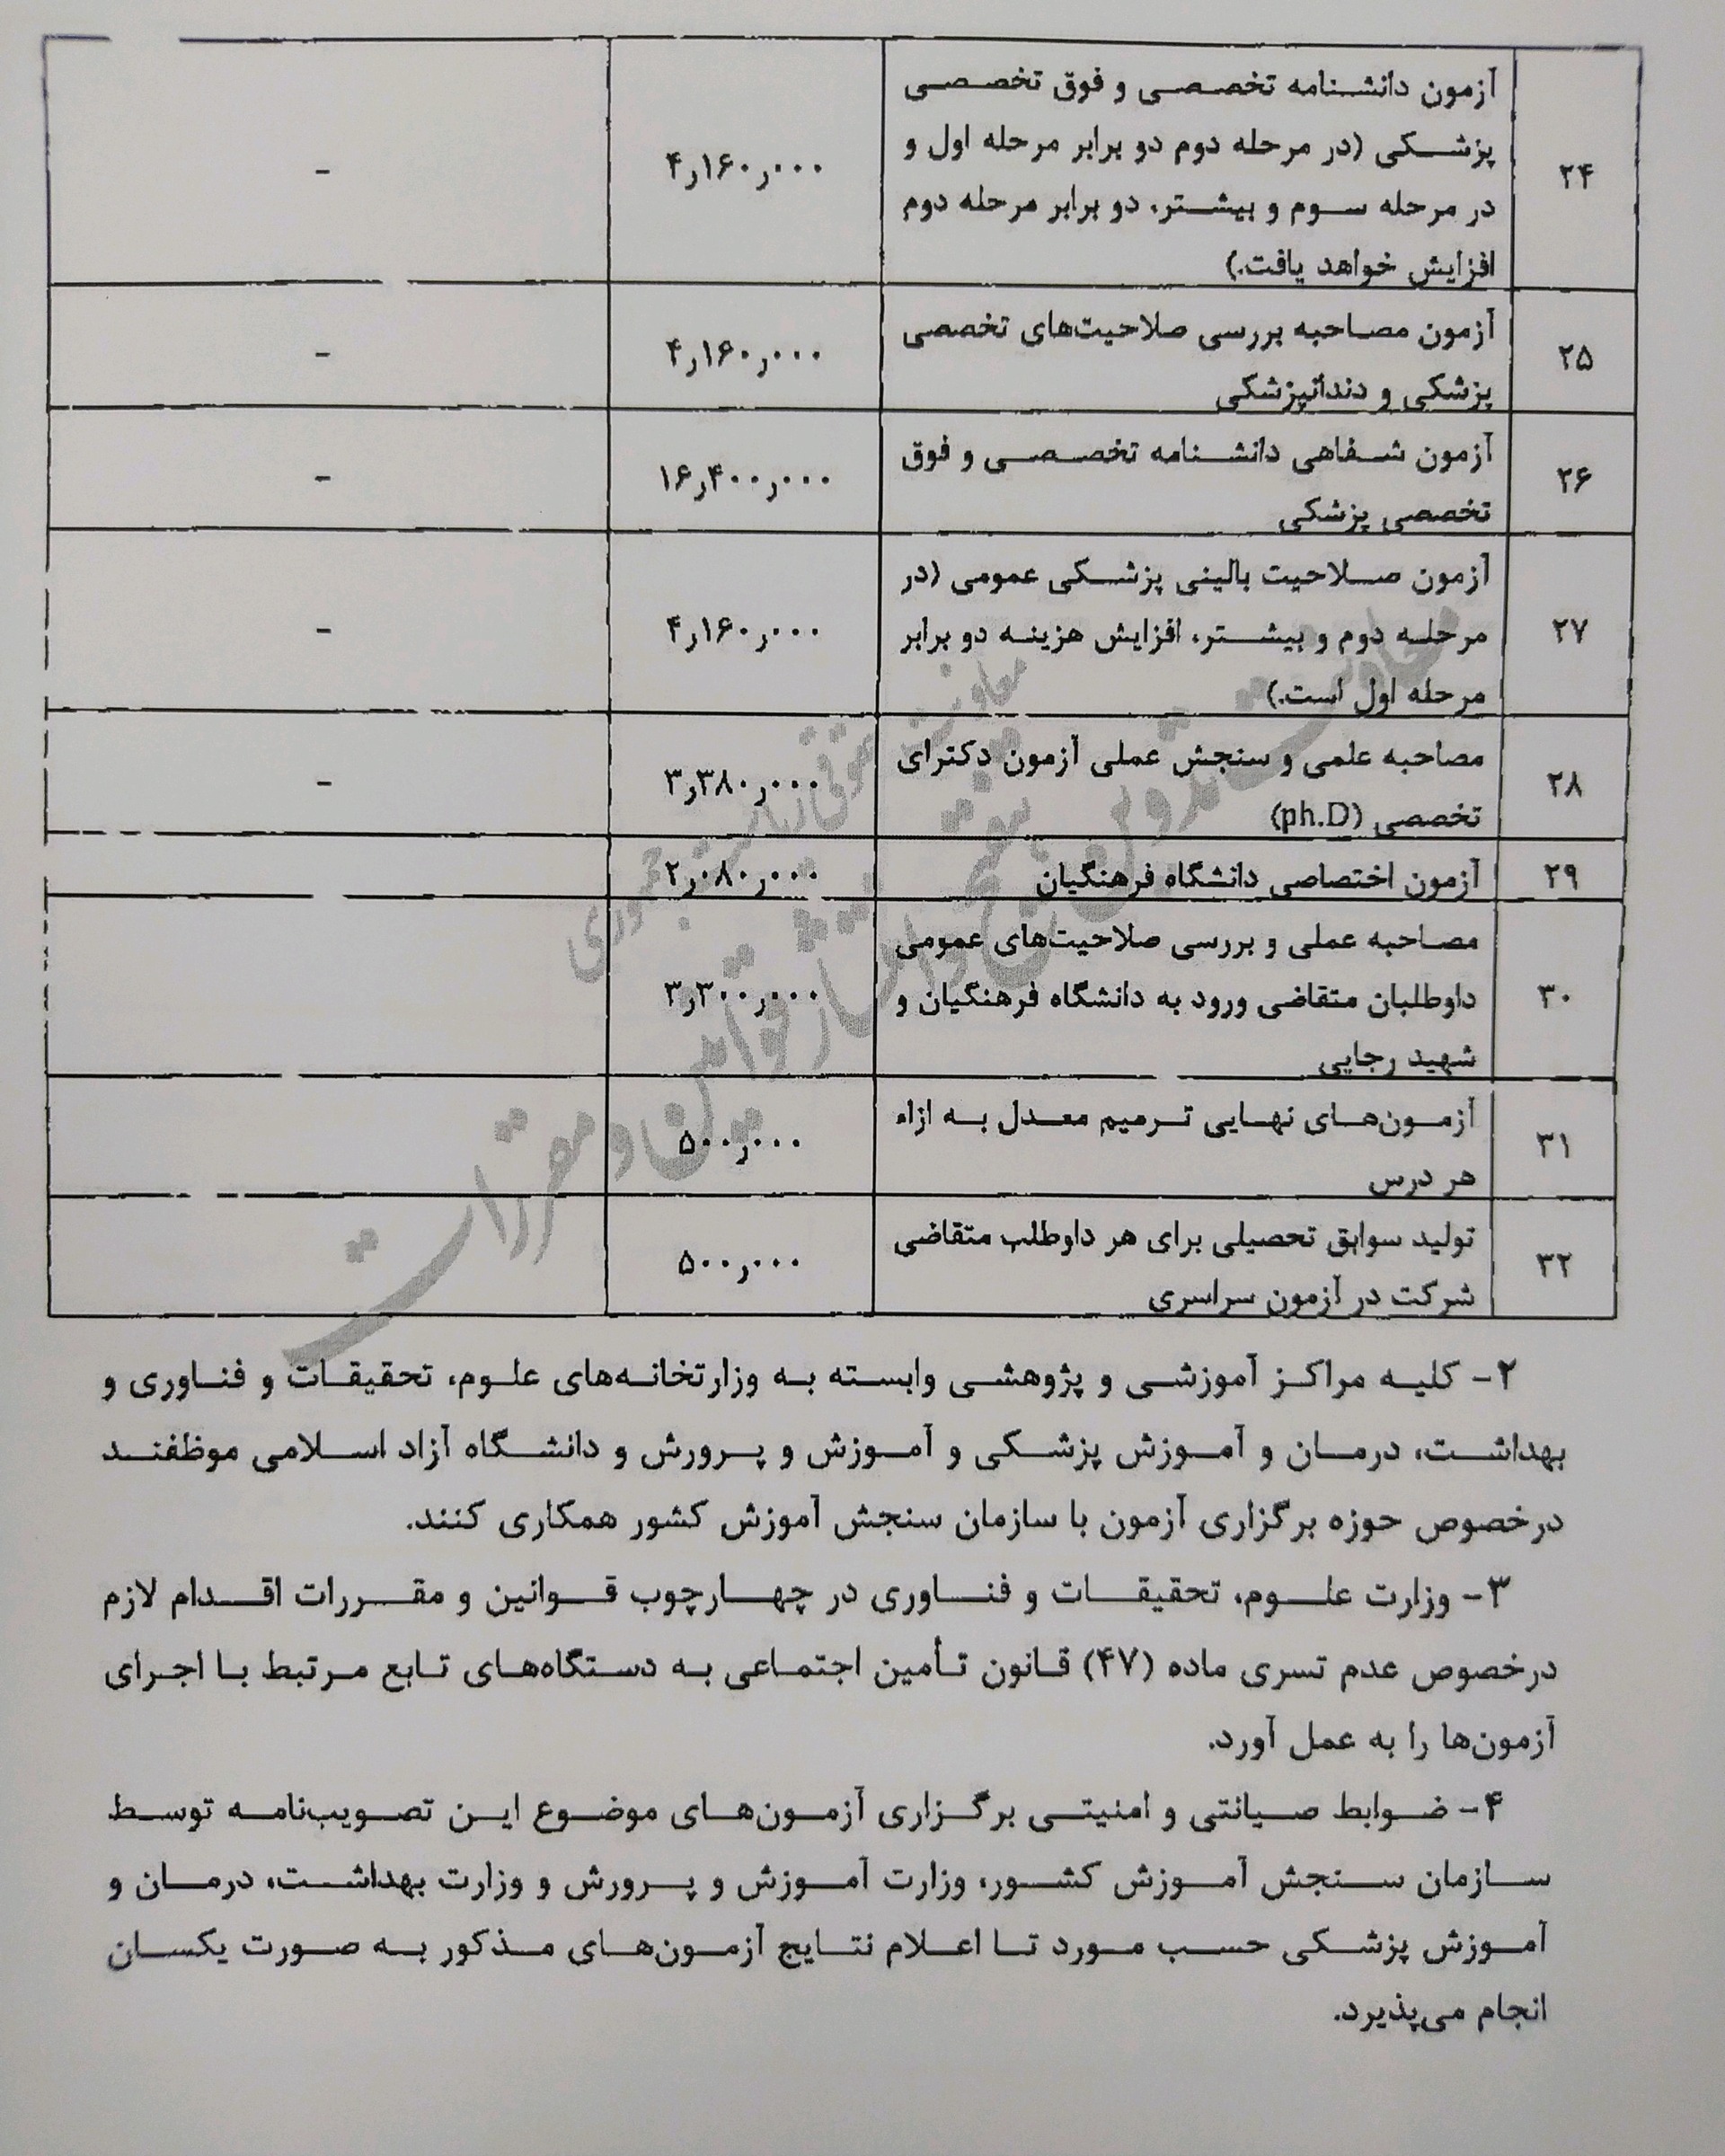 ۲۴
آزمون دانشنامه تخصصی و فوق تخصصی
پزشکی (در مرحله دوم دو برابر مرحله اول و
در مرحله سوم و بیشتر، دو برابر مرحله دوم
افزایش خواهد یافت.)
۴٫۱۶۰٫۰۰۰
-
۲۵
آزمون مصاحبه بررسی صلاحیت‌های تخصصی
پزشکی و دندانپزشکی
۴٫۱۶۰٫۰۰۰
-
۲۶
آزمون شفاهی دانشنامه تخصصی و فوق
تخصصی پزشکی
۱۶٫۴۰۰٫۰۰۰
-
۲۷
آزمون صلاحیت بالینی پزشکی عمومی (در
مرحله دوم و بیشتر، افزایش هزینه دو برابر
مرحله اول است.)
۴٫۱۶۰٫۰۰۰
-
۲۸
مصاحبه علمی و سنجش عملی آزمون دکترای
تخصصی (ph.D)
۳٫۳۸۰٫۰۰۰
-
۲۹
آزمون اختصاصی دانشگاه فرهنگیان
۲٫۰۸۰٫۰۰۰
۳۰
مصاحبه عملی و بررسی صلاحیت‌های عمومی
داوطلبان متقاضی ورود به دانشگاه فرهنگیان و
شهید رجایی
۳٫۳۰۰٫۰۰۰
۳۱
آزمون‌های نهایی ترمیم معدل به ازاء
هر درس
۵۰۰٫۰۰۰
۳۲
تولید سوابق تحصیلی برای هر داوطلب متقاضی
شرکت در آزمون سراسری
۵۰۰٫۰۰۰
۲- کلیه مراکز آموزشی و پژوهشی وابسته به وزارتخانه‌های علوم، تحقیقات و فناوری و
بهداشت، درمان و آموزش پزشکی و آموزش و پرورش و دانشگاه آزاد اسلامی موظفند
درخصوص حوزه برگزاری آزمون با سازمان سنجش آموزش کشور همکاری کنند.
۳- وزارت علوم، تحقیقات و فناوری در چهارچوب قوانین و مقررات اقدام لازم
درخصوص عدم تسری ماده (۴۷) قانون تأمین اجتماعی به دستگاه‌های تابع مرتبط با اجرای
آزمون‌ها را به عمل آورد.
۴- ضوابط صیانتی و امنیتی برگزاری آزمون‌های موضوع این تصویب‌نامه توسط
سازمان سنجش آموزش کشور، وزارت آموزش و پرورش و وزارت بهداشت، درمان و
آموزش پزشکی حسب مورد تا اعلام نتایج آزمون‌های مذکور به صورت یکسان
انجام می‌پذیرد.